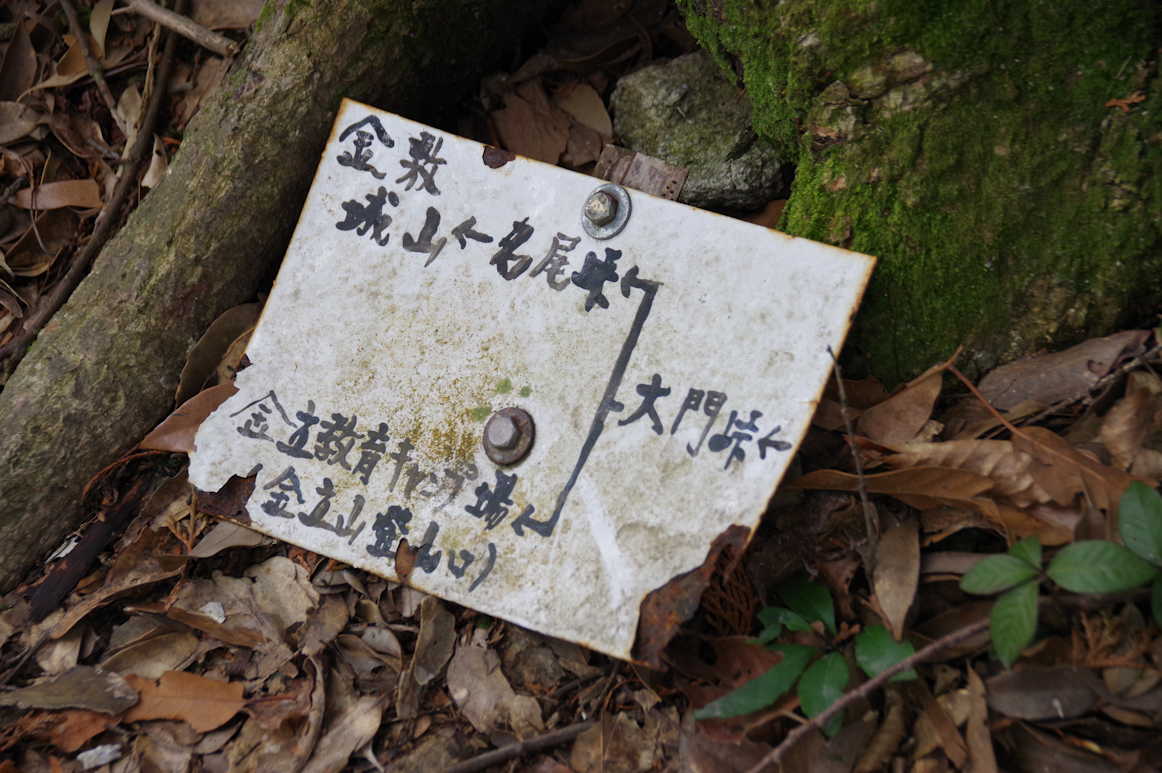 金敷
城山←名尾峠←
大門峠←
金立教育キャンプ場←
(金立山登山口)